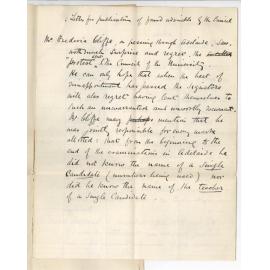 (Letter for publication if found advisable by the Council
Mr Frederic Cliffe, in passing through Adelaide, saw
with much surprise and regret, the
"protest" to the Council of the University
He can only hope that when the heat of
disappointment has passed the signators
will also regret having lent themselves to
such an unwarranted and unworthy
Mr Cliffe may perhaps mention that he
was jointly responsible for every mark
allotted: that from the beginning to the
end of the examinations in Adelaide he
did not know the name of a single
Candidate (numbers being used) nor
did he know the name of the teacher
of a single Candidate